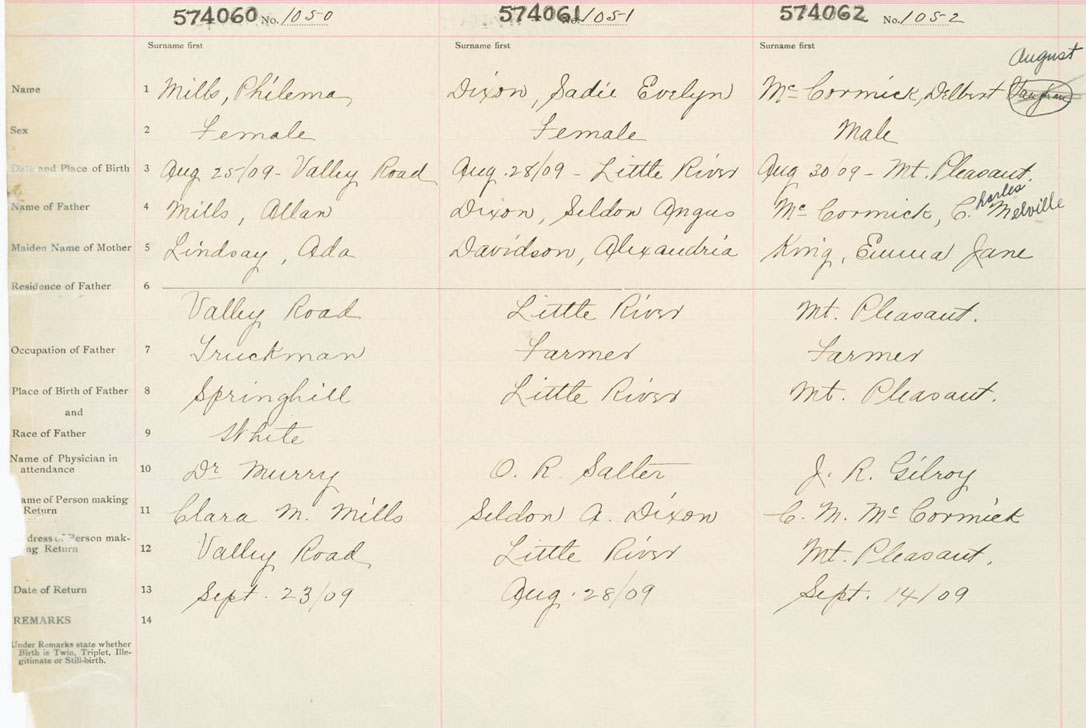 574060 No. 1050 574061 No. 1051 574062 No. 1052
Surname first Surname first Surname first
August
Name 1 Mills, Philema Dixon, Sadie Evelyn Mc Cormick, Delbert
Sex 2 Female Female Male
Date and Place of Birth 3 Aug 25/09 - Valley Road Aug. 28/09 - Little River Aug 30 09 - Mt. Pleasant.
Name of Father 4 Mills, Allan Dixon, Seldon Angus Mc Cormick, Charles Melville
Maiden Name of Mother 5 Lindsay, Ada Davidson, Alexandria King, Emma Jane
Residence of Father 6
Valley Road Little River Mt. Pleasant.
Occupation of Father 7 Truckman Farmer Farmer
Place of Birth of Father 8 Springhill Little River Mt. Pleasant.
and
Race of Father 9 White
Name of Physician in
attendance 10 Dr Murry O. R. Salter J. R. Gilroy
ame of Person making
Return 11 Clara M. Mills Seldon A. Dixon C. M. Mc Cormick
dress of Person mak-
ng Return 12 Valley Road Little River Mt. Pleasant.
Date of Return 13 Sept. 23/09 Aug. 28/09 Sept. 14/09
REMARKS 14
Under Remarks state whether
Birth is Twin, Triplet, Ille-
gitimate or Still-birth.